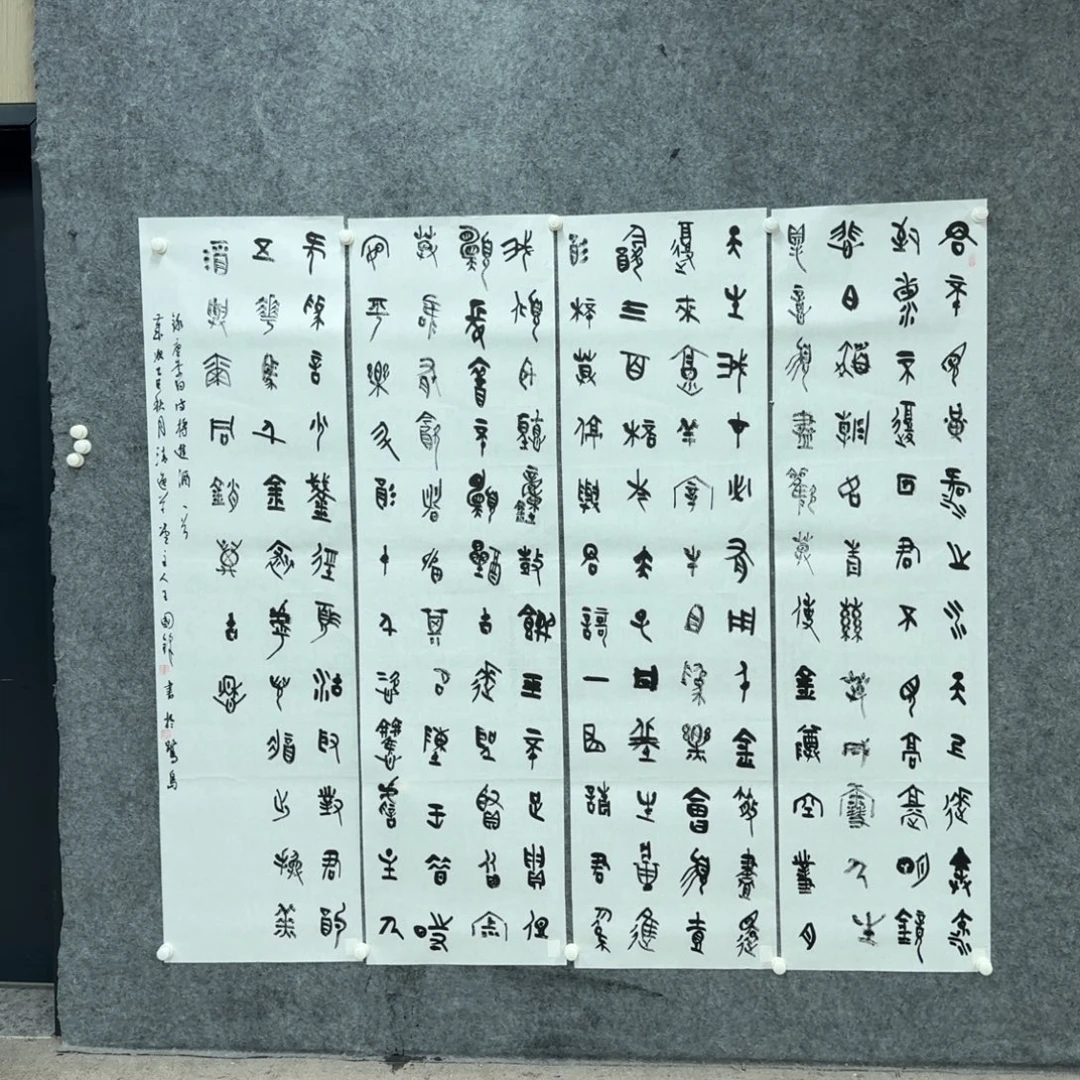 君不見黃河之水天上來奔流
到海不復回君不見高堂明鏡
悲白髮朝如青絲暮成雪人生
得意須盡歡莫使金樽空對月
天生我材必有用千金散盡還
復來烹羊宰牛且為樂會須壹
飲三百杯岑夫子丹丘生將進
酒杯莫停與君歌一曲請君為
我傾耳聽鐘鼓饌玉不足貴但
願長醉不願醒古來聖賢皆寂
寞惟有飲者留其名陳王昔時
宴平樂斗酒十千恣歡謔主人
何為言少錢徑須沽取對君酌
五花馬千金裘呼兒將出換美
酒與爾同銷萬古愁
錄唐李白詩將進酒一首
歲次乙巳秋月主人王國書於鷺島